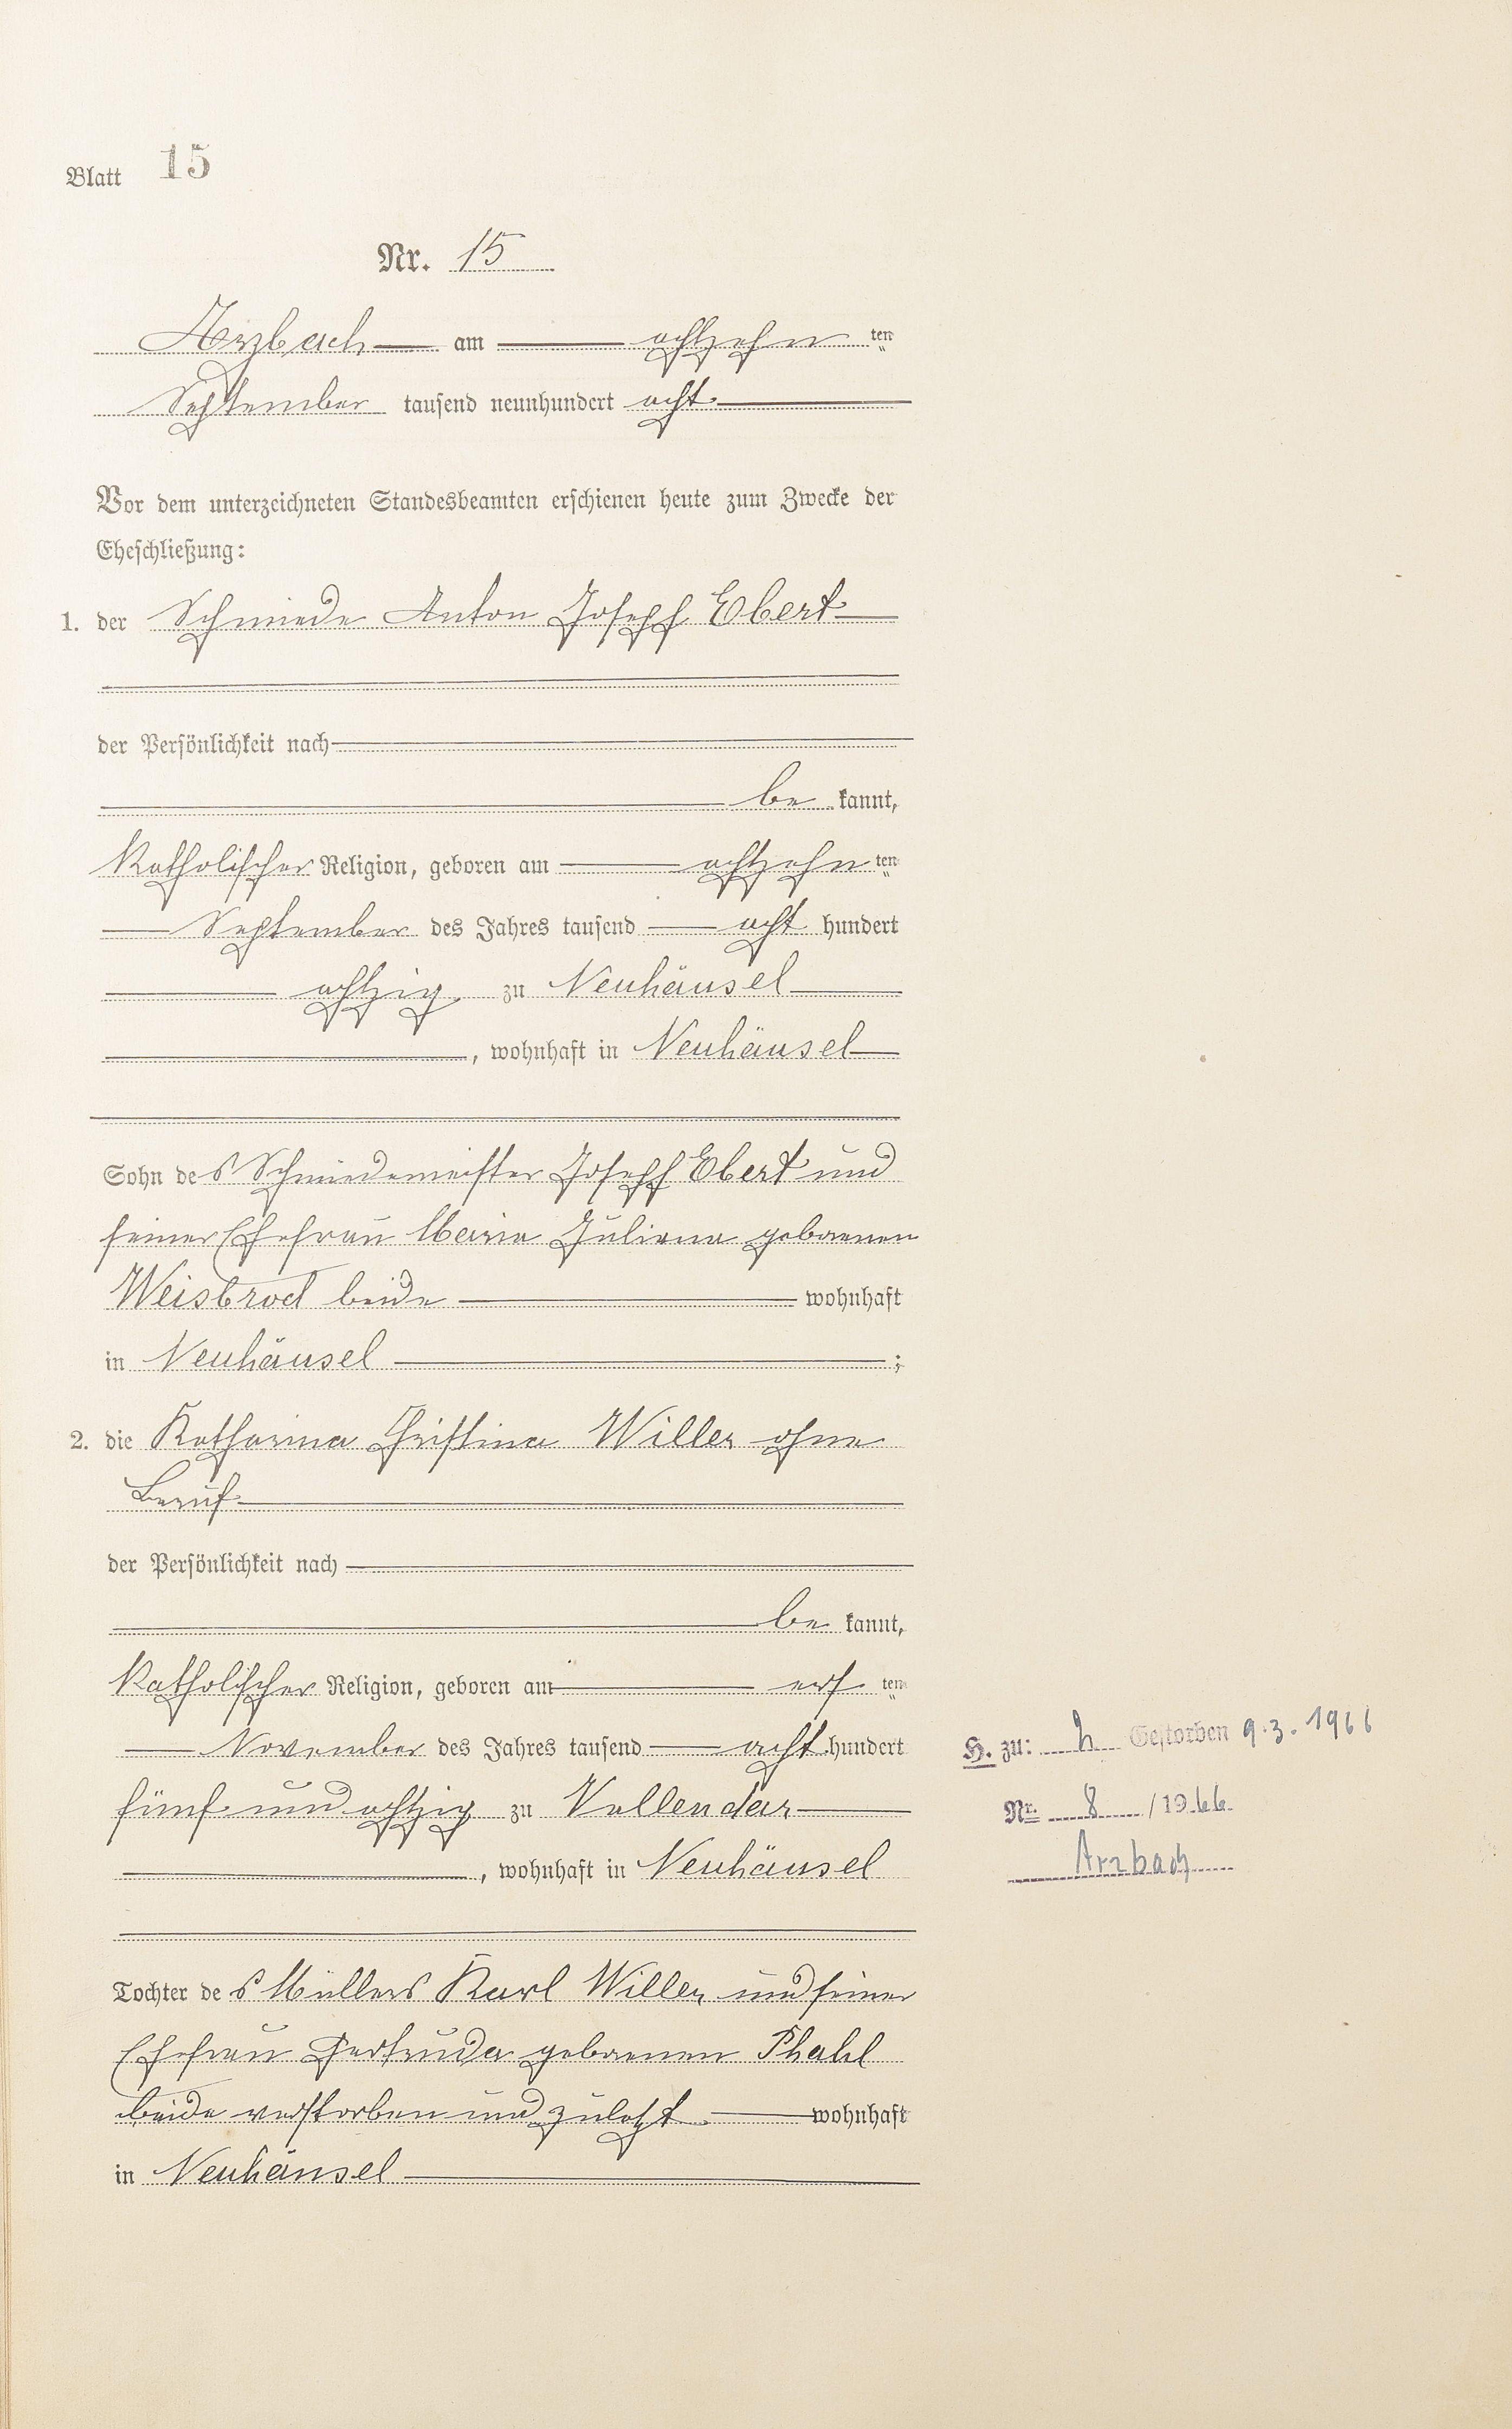 Blatt 15
Nr. 15
Arzbach am achtzehn ten
September tausend neunhundert acht
Vor dem unterzeichneten Standesbeamten erschienen heute zum Zwecke der
Eheschließung:
1. der Schmiede Anton Joseph Ebert
der Persönlichkeit nach
be kannt,
Katholischer Religion, geboren am achtzehn ten
September des Jahres tausend acht hundert
achtzig zu Neuhäusel
, wohnhaft in Neuhäusel
Sohn des Schmiedemeister Joseph Ebert und
seiner Ehefrau Maria Juliana geborenen
Weisbrod beide wohnhaft
in Neuhäusel ;
2. die Katharina Christina Willer ohne
Beruf
der Persönlichkeit nach
be kannt,
Katholischer Religion, geboren am ers ten
November des Jahres tausend acht hundert
fünf und achtzig zu Vallendar
, wohnhaft in Neuhäusel
H. zu: 2 Gestorben 9.3.1966
Nr. 8 /1966
Arzbach
Tochter des Müllers Karl Willer und seiner
Ehefrau Gertruda geborenen Phahl
beide verstorben und zuletzt wohnhaft
in Neuhäusel